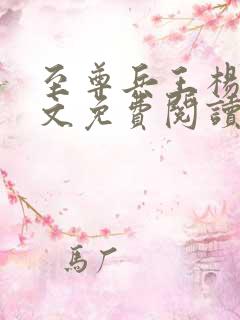 至尊兵王楊
文免費閱讀
馬厂